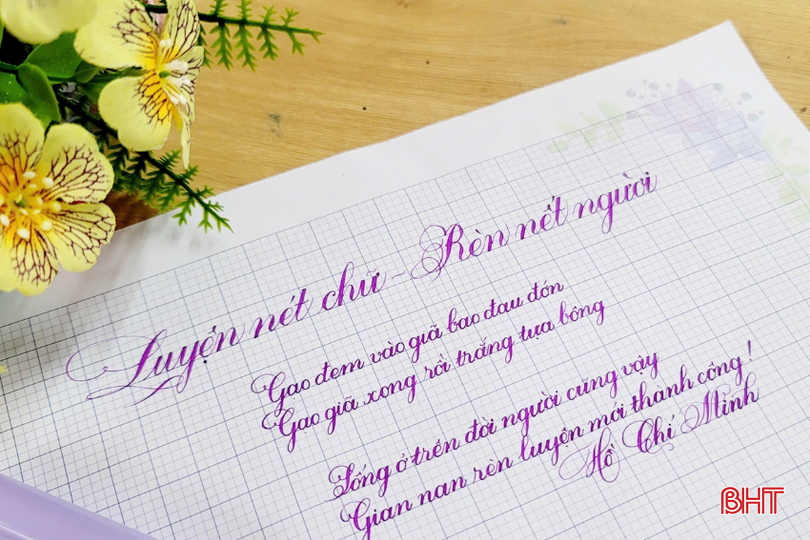 Luyện nét chữ ~ Rèn nết người
Gạo đem vào giã bao đau đớn
Gạo giã xong rồi trắng tựa bông
Sống ở trên đời người cũng vậy
Gian nan rèn luyện mới thành công !
Hồ Chí Minh
BHT